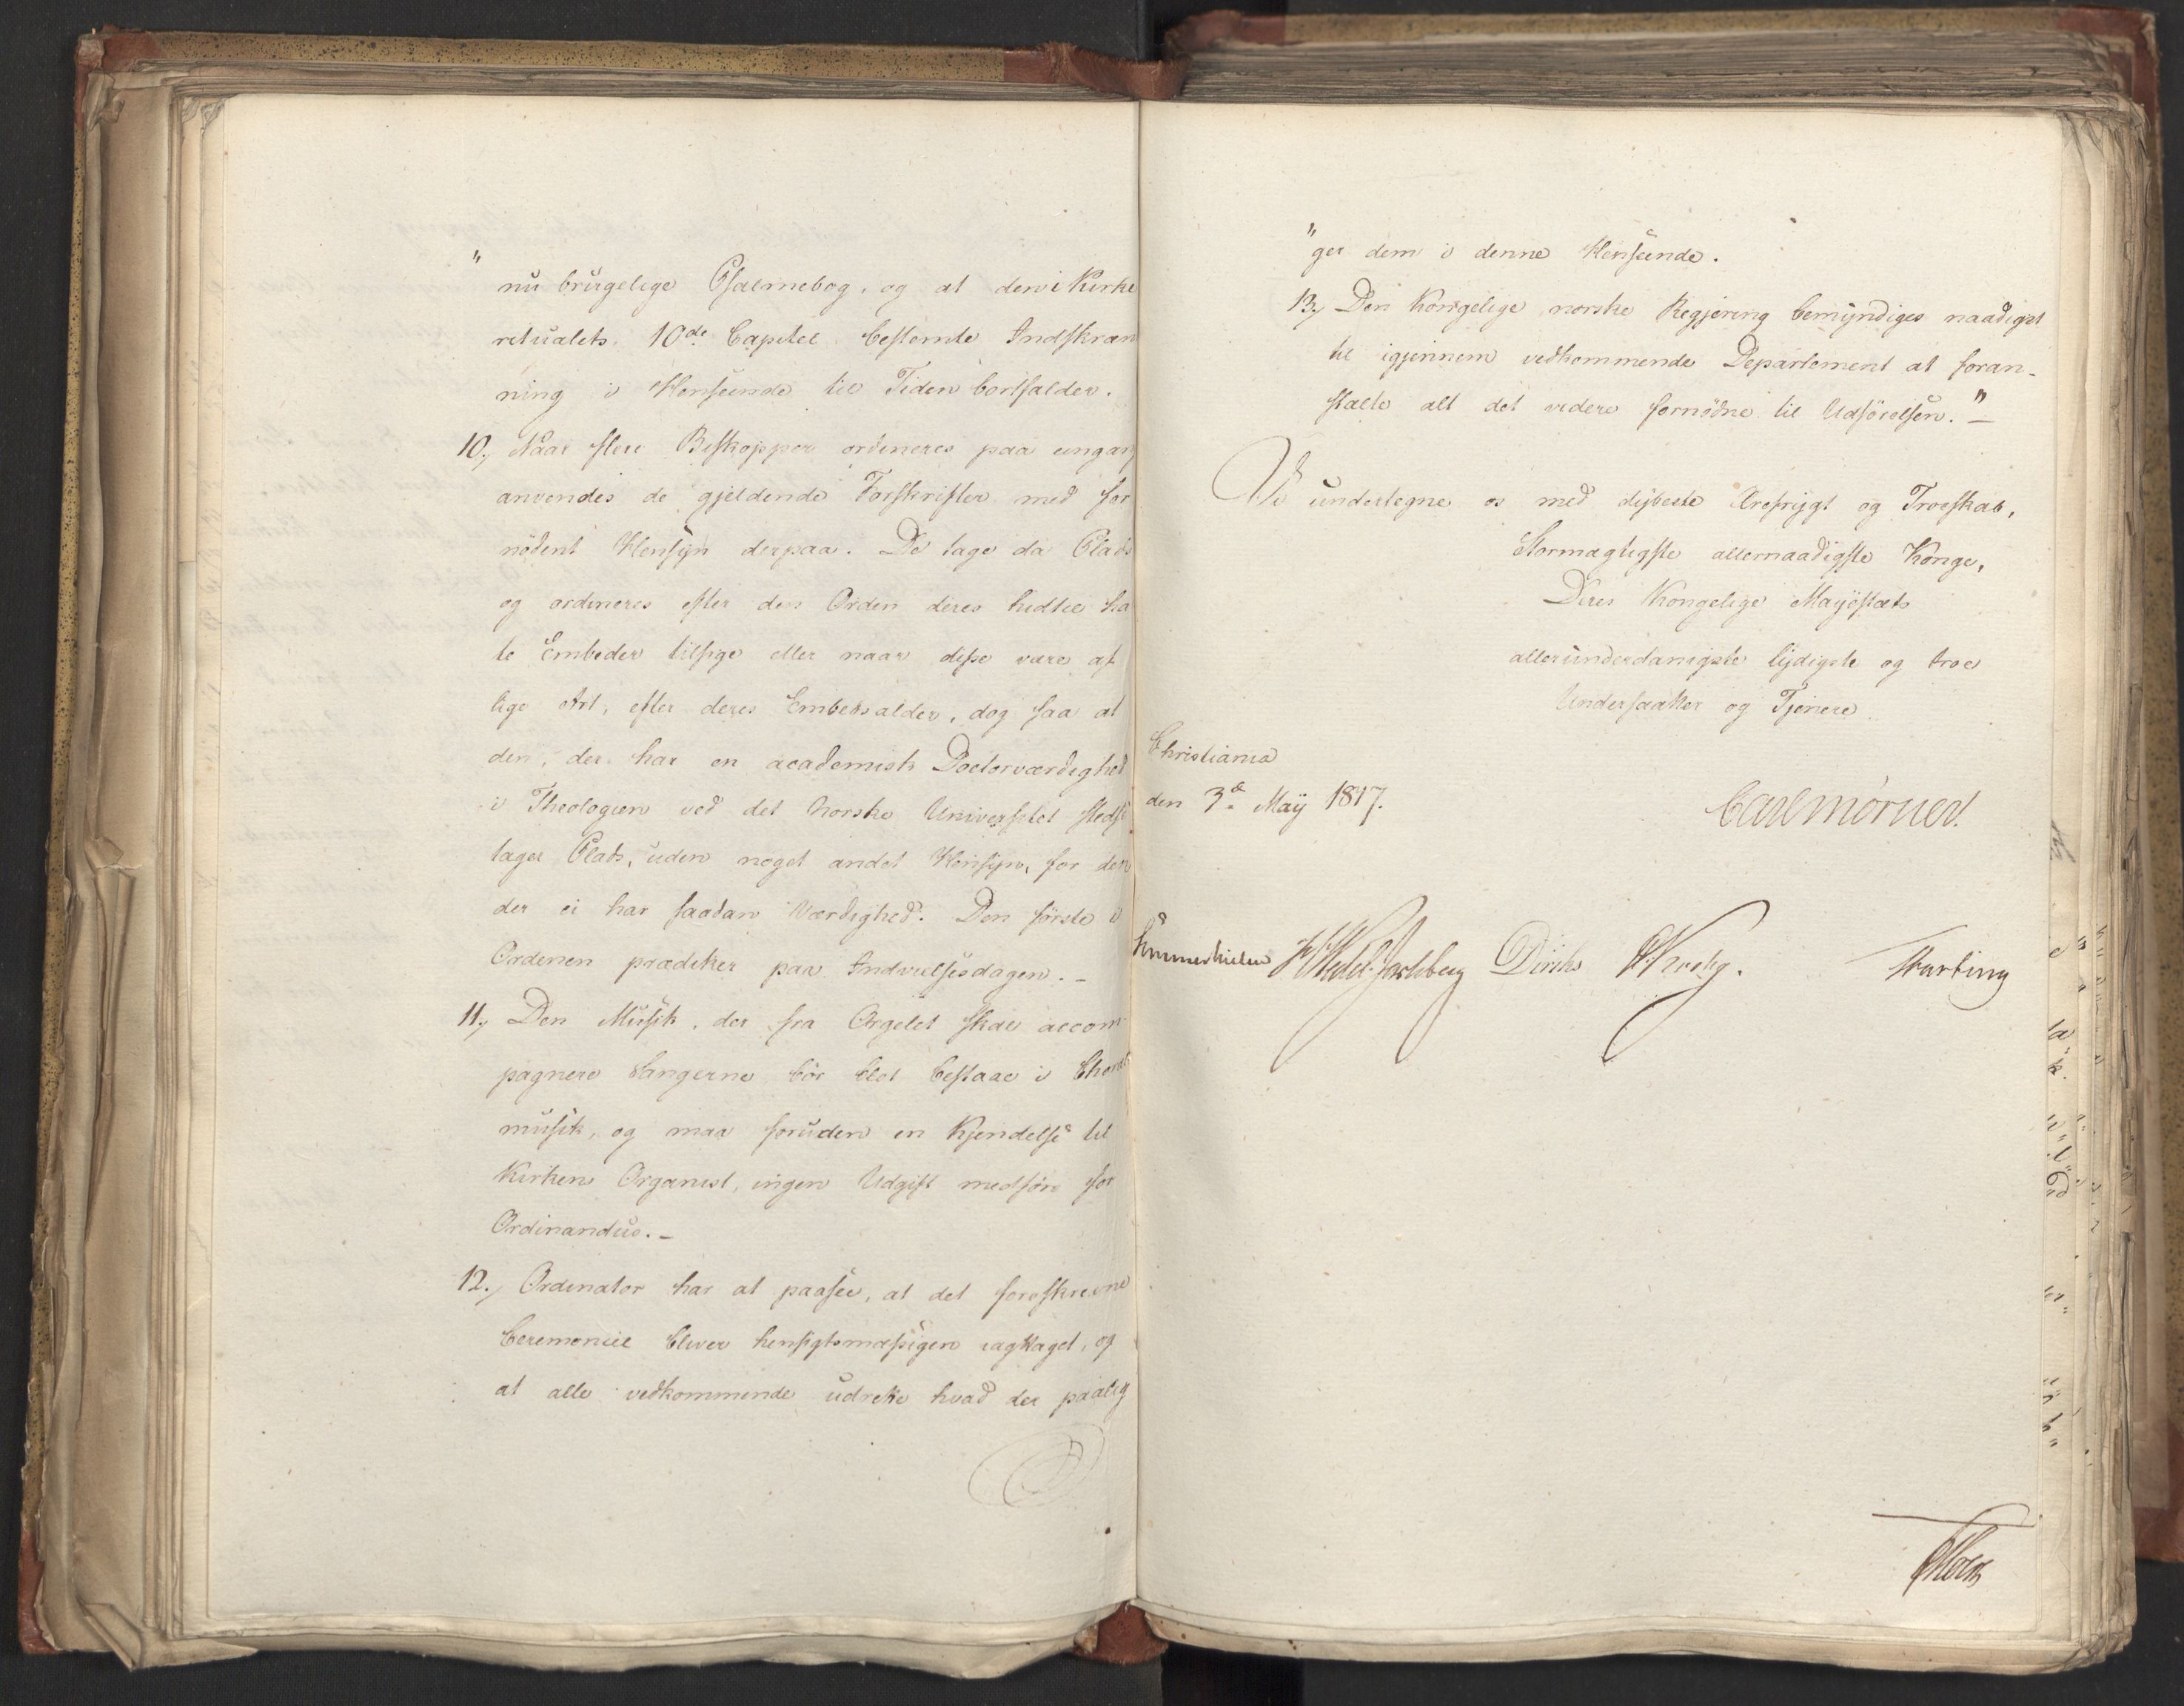 "
nu brugelige Psalmebog, og at den i Kirke
ritualets 10de Capitel bestemte Indskræn
ning i Henseende til Tiden bortfalder.
10., Naar flere Biskopper ordineres paa eengang
anvendes de gjeldende Forskrifter med for
nødent Hensyn derpaa. De tage da Plads
og ordineres efter den Orden deres hidtil hav
te Embeder tilsige eller naar disse være af
lige Art, efter deres Embedsalder, dog saa at
den, der har en academisk Doctorværdighed
i Theologien ved det norske Universitet stedse
tager Plads, uden noget andet Hensyn, for den
der ei har saadan Værdighed. Den første i
Ordenen prædiker paa Indvielsesdagen. -
11., Den Musik, der fra Orgelet skal accom
pagnere Sangerne bör blot bestaae i Choral
musik, og maa foruden en Kjendelse til
Kirkens Organist, ingen Udgift medføre for
Ordinandus. -
12., Ordinator har at paasee, at det foreskrevne
Ceremoniel bliver hensigtsmæssigen iagttaget, og
at alle vedkommende udrette hvad der paalig
"ger dem i denne Henseende.
13., Den Kongelige norske Regjering bemyndiges naadigst
til igjennem vedkommende Departement at foran-
stalte alt det videre fornødne til Udførelsen." -
Vi undertegne os med dybeste Ærefrygt og Troeskab,
Stormægtigste allernaadigste Konge,
Deres Kongelige Majestæts
allerunderdanigste lydigste og troe
Undersaatter og Tjenere
Christiania
den 3d. May 1817.
Carl Mörner.
Sommerhielm HWedel-Jarlsberg Diriks Krohg.